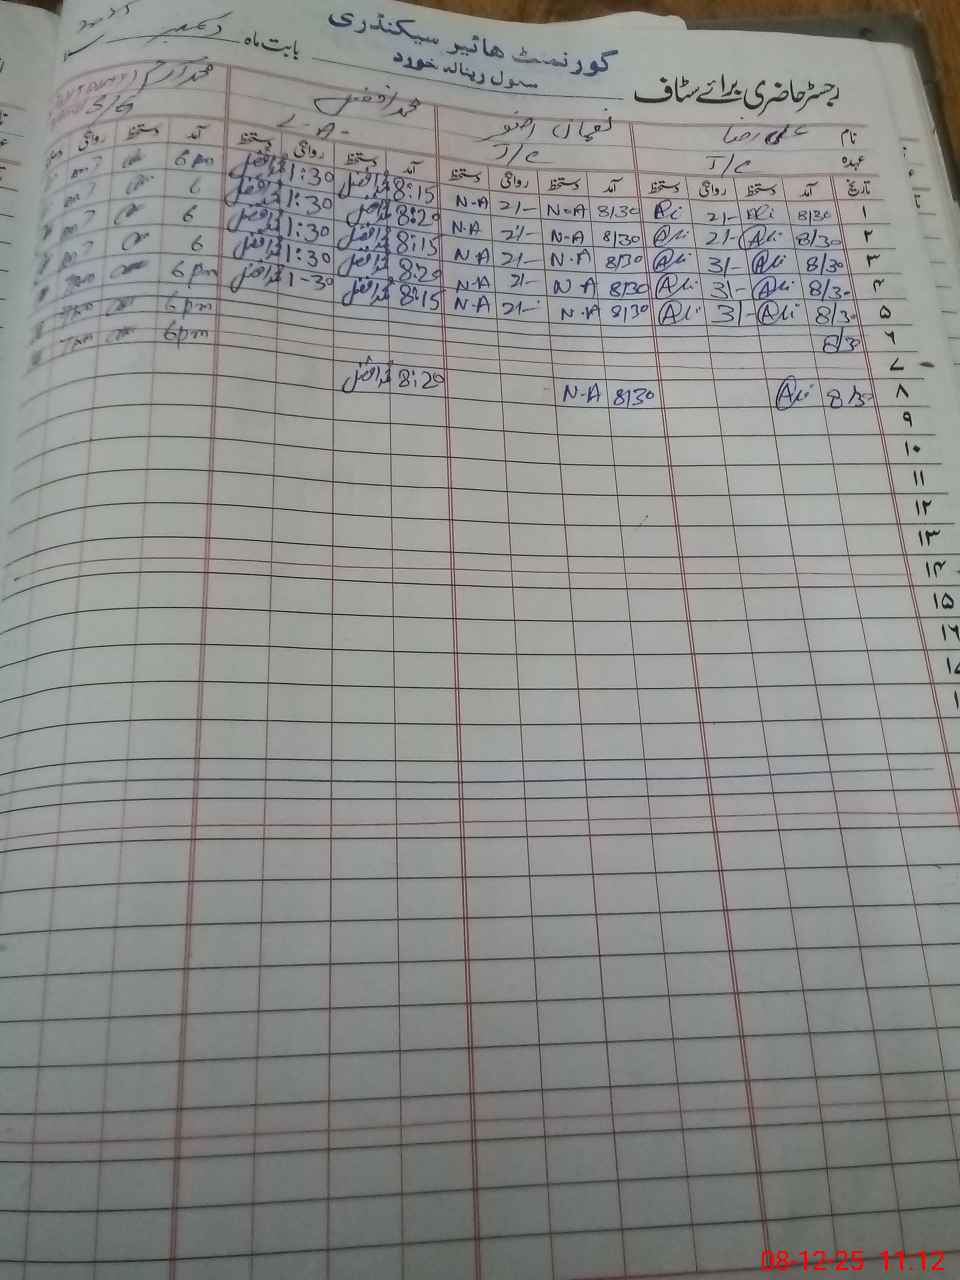 گورنمنٹ ہائیر سیکنڈری
سکول رینالہ خورد
رجسٹر حاضری برائے سٹاف
بابت ماہ دسمبر 2025
نام علی رضا نعمان محمد افضل محمد اکرم
عہدہ J/C J/C L.A
تاریخ آمد دستخط روانگی دستخط آمد دستخط روانگی دستخط آمد دستخط روانگی دستخط آمد دستخط روانگی
۱ 8/30 Ali 2/- Ali 8/30 N-A 2/- N-A 8:15 محمد افضل 1:30 محمد افضل 6 pm
۲ 8/30 Ali 2/- Ali 8/30 N-A 2/- N-A 8:20 محمد افضل 1:30 محمد افضل 6
۳ 8/30 Ali 3/- Ali 8/30 N-A 2/- N-A 8:15 محمد افضل 1:30 محمد افضل 6
۴ 8/30 Ali 3/- Ali 8/30 N-A 2/- N-A 8:20 محمد افضل 1:30 محمد افضل 6
۵ 8/30 Ali 3/- Ali 8/30 N-A 2/- N-A 8:15 محمد افضل 1-30 محمد افضل 6 pm
۶ 8/30 6 pm
۷ 6 pm
۸ 8/30 Ali 8/30 N-A 8:20 محمد افضل
۹
۱۰
۱۱
۱۲
۱۳
۱۴
۱۵
۱۶
08-12-25 11.12